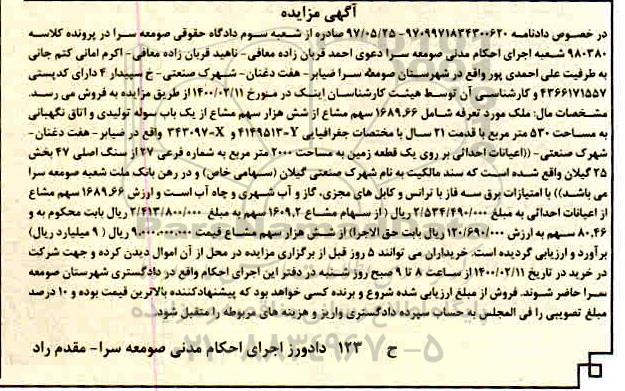 آگهی مزایده
در خصوص دادنامه ۹۷۰۹۹۷۱۸۳۴۳۰۰۶۲۰-۹۷/۰۵/۲۵ صادره از شعبه سوم دادگاه حقوقی صومعه سرا در پرونده کلاسه
۹۸۰۳۸۰ شعبه اجرای احکام مدنی صومعه سرا دعوی احمد قربان زاده معافی- ناهید قربان زاده معافی- اکرم امانی کتم جانی
به طرفیت علی احمدی پور واقع در شهرستان صومعه سرا ضیابر- هفت دغنان- شهرک صنعتی- خ سپیدار ۴ دارای کدپستی
۴۳۶۶۱۷۱۵۵۷ و کارشناسی آن توسط هیئت کارشناسان اینک در مورخ ۱۴۰۰/۰۲/۱۱ از طریق مزایده به فروش می رسد.
مشخصات مال: ملک مورد تعرفه شامل ۱۶۸۹.۶۶ سهم مشاع از شش هزار سهم مشاع از یک باب سوله تولیدی و اتاق نگهبانی
به مساحت ۵۳۰ متر مربع با قدمت ۲۱ سال با مختصات جغرافیایی Y-۴۱۴۹۵۱۳ و X-۳۴۳۰۹۷ واقع در ضیابر- هفت دغنان-
شهرک صنعتی- ((اعیانات احداثی بر روی یک قطعه زمین به مساحت ۲۰۰۰ متر مربع به شماره فرعی ۲۷ از سنگ اصلی ۴۷ بخش
۲۵ گیلان واقع شده است که سند مالکیت به نام شهرک صنعتی گیلان (سهامی خاص) و در رهن بانک ملت شعبه صومعه سرا
می باشد)) با امتیازات برق سه فاز با ترانس و کابل های مجزی، گاز و آب شهری و چاه آب است و ارزش ۱۶۸۹.۶۶ سهم مشاع
از اعیانات احداثی به مبلغ ۲/۵۳۴/۴۹۰/۰۰۰ ریال ( از سهام مشاع ۱۶۰۹.۲ سهم به مبلغ ۲/۴۱۳/۸۰۰/۰۰۰ ریال بابت محکوم به و
۸۰.۴۶ سهم به ارزش ۱۲۰/۶۹۰/۰۰۰ ریال بابت حق الاجرا) از شش هزار سهم مشاع قیمت ۹.۰۰۰.۰۰۰.۰۰۰ ریال ( ۹ میلیارد ریال)
برآورد و ارزیابی گردیده است. خریداران می توانند ۵ روز قبل از برگزاری مزایده در محل از آن اموال دیدن کرده و جهت شرکت
در خرید در تاریخ ۱۴۰۰/۰۲/۱۱ از ساعت ۸ تا ۹ صبح روز شنبه در دفتر این اجرای احکام واقع در دادگستری شهرستان صومعه
سرا حاضر شوند. فروش از مبلغ ارزیابی شده شروع و برنده کسی خواهد بود که پیشنهادکننده بالاترین قیمت بوده و ۱۰ درصد
مبلغ تصویبی را فی المجلس به حساب سپرده دادگستری واریز و هزینه های مربوطه را متقبل شود.
ح ۱۲۳ دادورز اجرای احکام مدنی صومعه سرا- مقدم راد